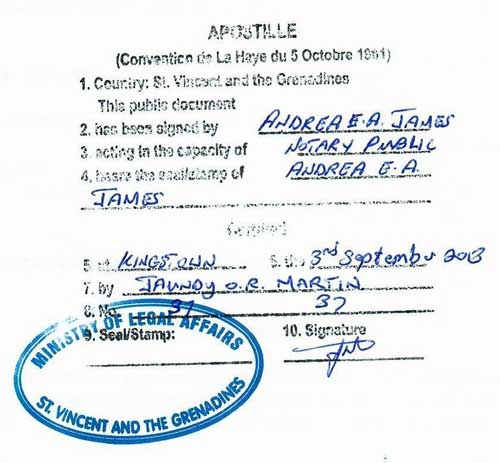 APOSTILLE
(Convention de La Haye du 5 Octobre 1961)
1. Country: St. Vincent and the Grenadines
This public document
2. has been signed by ANDREA E.A. JAMES
3. acting in the capacity of NOTARY PUBLIC
4. bears the seal/stamp of ANDREA E.A.
JAMES
Certified
5. at KINGSTOWN 6. the 3rd September 2013
7. by JAUNDY O.R. MARTIN
8. No. 37 37
9. Seal/Stamp: 10. Signature
MINISTRY OF LEGAL AFFAIRS
ST. VINCENT AND THE GRENADINES